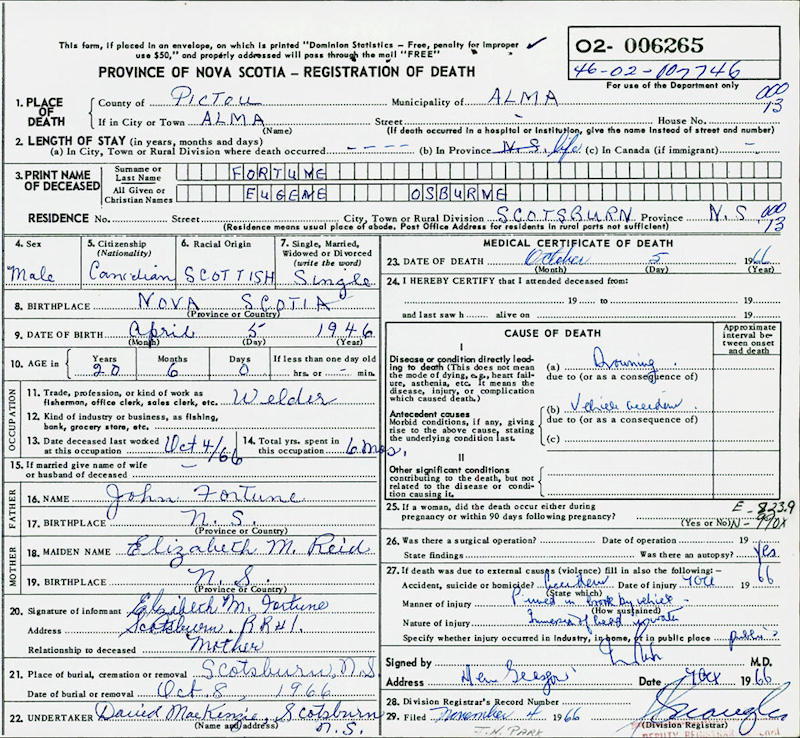 This form, if placed in an envelope, on which is printed "Dominion Statistics — Free, penalty for improper
use $50," and properly addressed will pass through the mail "FREE"
O2- 006265
46-02-007746
For use of the Department only
PROVINCE OF NOVA SCOTIA — REGISTRATION OF DEATH
1. PLACE OF DEATH County of Pictou Municipality of ALMA 000 13
If in City or Town ALMA Street - House No.
(Name) (If death occurred in a hospital or institution, give the name instead of street and number)
2. LENGTH OF STAY (in years, months and days)
(a) In City, Town or Rural Division where death occurred - - - - (b) In Province N.S. life (c) In Canada (if immigrant) -
3. PRINT NAME OF DECEASED Surname or Last Name FORTUNE
All Given or Christian Names EUGENE OSBURNE
RESIDENCE No. Street City, Town or Rural Division SCOTSBURN Province N.S. 000 13
(Residence means usual place of abode. Post Office Address for residents in rural parts not sufficient)
4. Sex 5. Citizenship (Nationality) 6. Racial Origin 7. Single, Married, Widowed or Divorced (write the word)
Male Canadian SCOTTISH Single
8. BIRTHPLACE NOVA SCOTIA
(Province or Country)
9. DATE OF BIRTH April 5 1946
(Month) (Day) (Year)
10. AGE in Years Months Days If less than one day old
20 6 0 hrs. or - min.
OCCUPATION
11. Trade, profession, or kind of work as fisherman, office clerk, sales clerk, etc. Welder
12. Kind of industry or business, as fishing, bank, grocery store, etc.
13. Date deceased last worked at this occupation Oct 4/66 14. Total yrs. spent in this occupation 6 mos.
15. If married give name of wife or husband of deceased -
FATHER
16. NAME John Fortune
17. BIRTHPLACE N.S.
(Province or Country)
MOTHER
18. MAIDEN NAME Elizabeth M. Reid
19. BIRTHPLACE N.S.
(Province or Country)
20. Signature of informant Elizabeth M. Fortune
Address Scotsburn, RR#1.
Relationship to deceased Mother
21. Place of burial, cremation or removal Scotsburn, N.S
Date of burial or removal Oct. 8, 1966
22. UNDERTAKER David MacKenzie, Scotsburn N.S.
(Name and address)
MEDICAL CERTIFICATE OF DEATH
23. DATE OF DEATH October 5 1966
(Month) (Day) (Year)
24. I HEREBY CERTIFY that I attended deceased from:
19 to 19
and last saw h alive on 19
CAUSE OF DEATH
Approximate interval between onset and death
I
Disease or condition directly leading to death (This does not mean the mode of dying, e.g., heart failure, asthenia, etc. It means the disease, injury, or complication which caused death.)
(a) Drowning
due to (or as a consequence of)
Antecedent causes
Morbid conditions, if any, giving rise to the above cause, stating the underlying condition last.
(b) Vehicle accident
due to (or as a consequence of)
(c)
II
Other significant conditions contributing to the death, but not related to the disease or condition causing it.
25. If a woman, did the death occur either during pregnancy or within 90 days following pregnancy? (Yes or No)
E-823.9
N-990X
26. Was there a surgical operation? Date of operation 19
State findings Was there an autopsy? yes
27. If death was due to external causes (violence) fill in also the following—
Accident, suicide or homicide? Accident Date of injury 19 66
(State which)
Manner of injury Pinned in brook by vehicle
(How sustained)
Nature of injury Immersion of head
Specify whether injury occurred in industry, in home, or in public place public
Signed by M.D.
Address New Glasgow Date 19 66
28. Division Registrar's Record Number
29. Filed November 4 19 66
(Division Registrar)
J.N. PARK